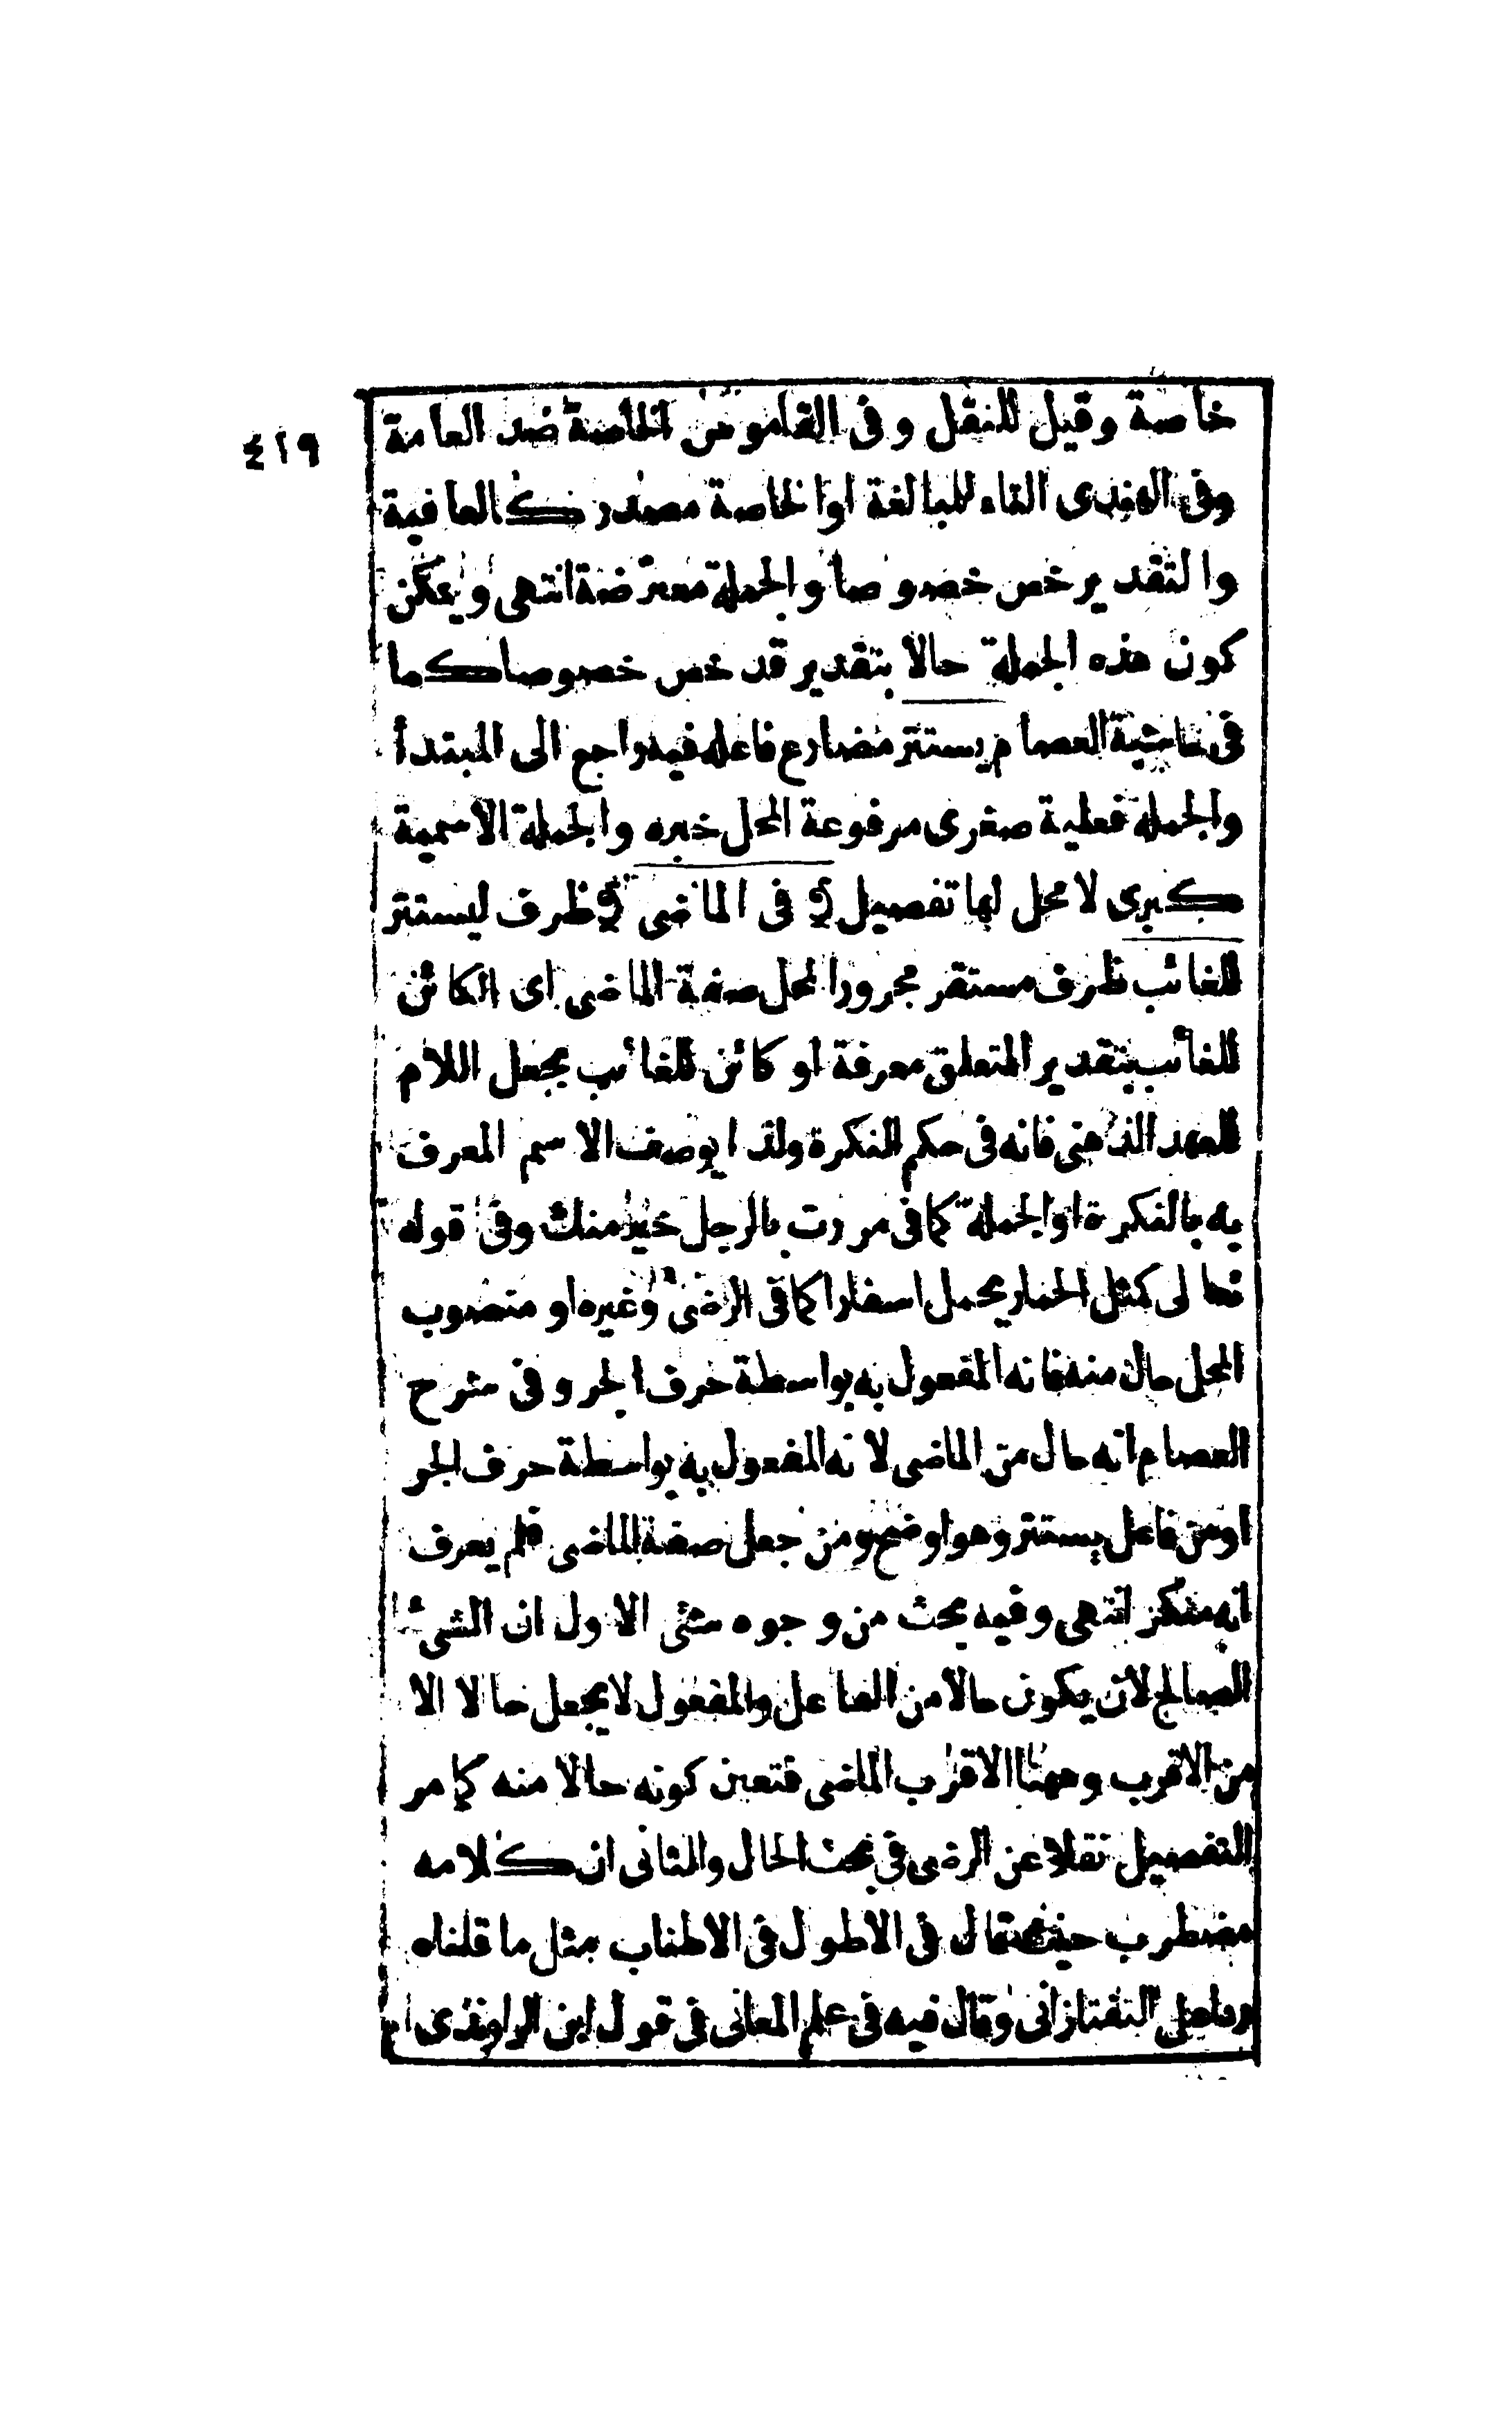 ٤١٩
خاصة وقيل للنقل وفى القاموس الخاصة ضد العامة
وفى الهندى التاء للمبالغة او الخاصة مصدر كالعافية
والتقدير خص خصوصا والجملة معترضة انتهى ويمكن
كون هذه الجملة حالا بتقدير قد خص خصوصا كما
فى حاشية العصام يستتر مضارع فاعله فيه راجع الى المبتدأ
والجملة فعلية صغرى مرفوعة المحل خبره والجملة الاسمية
كبرى لا محل لها تفصيل فى الماضى ظرف ليستتر
للغائب ظرف مستقر مجرور المحل صفة الماضى اى الكائن
للغائب بتقدير المتعلق معرفة او كائن للغائب بجعل اللام
للعهد الذهنى فانه فى حكم النكرة ولذا يوصف الاسم المعرف
به بالنكرة او الجملة كما فى مررت بالرجل خير منك وفى قوله
تعالى كمثل الحمار يحمل اسفارا كما فى الرضى وغيره او منصوب
المحل حال منه فانه المفعول به بواسطة حرف الجر وفى شرح
العصام انه حال من الماضى لانه المفعول به بواسطة حرف الجر
او من فاعل يستتر وهو اوضح ومن جعل صفة الماضى فلم يعرف
انه منكر انتهى وفيه بحث من وجوه شتى الاول ان الشئ
الصالح لان يكون حالا من الفاعل والمفعول لا يجعل حالا الا
من الاقرب وههنا الاقرب الماضى فتعين كونه حالا منه كما مر
التفصيل نقلا عن الرضى فى بحث الحال والثانى ان كلامه
مضطرب حيث قال فى الاطول فى الاطناب مثل ما قلناه
التفتازانى وقال فيه فى علم المعانى فى قول ابن الراوندى